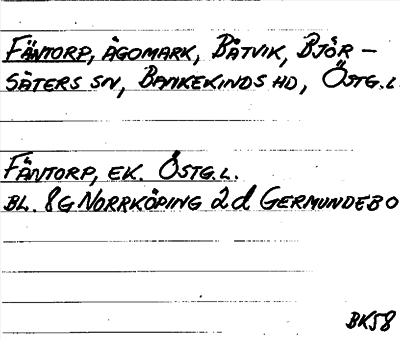 FÄNTORP, ÄGOMARK, BÅTVIK, BJÖR-
SÄTERS SN, BANKEKINDS HD, ÖSTG.L.
FÄNTORP, EK. ÖSTG.L.
BL. 8G NORRKÖPING 2d GERMUNDEBO
BK58